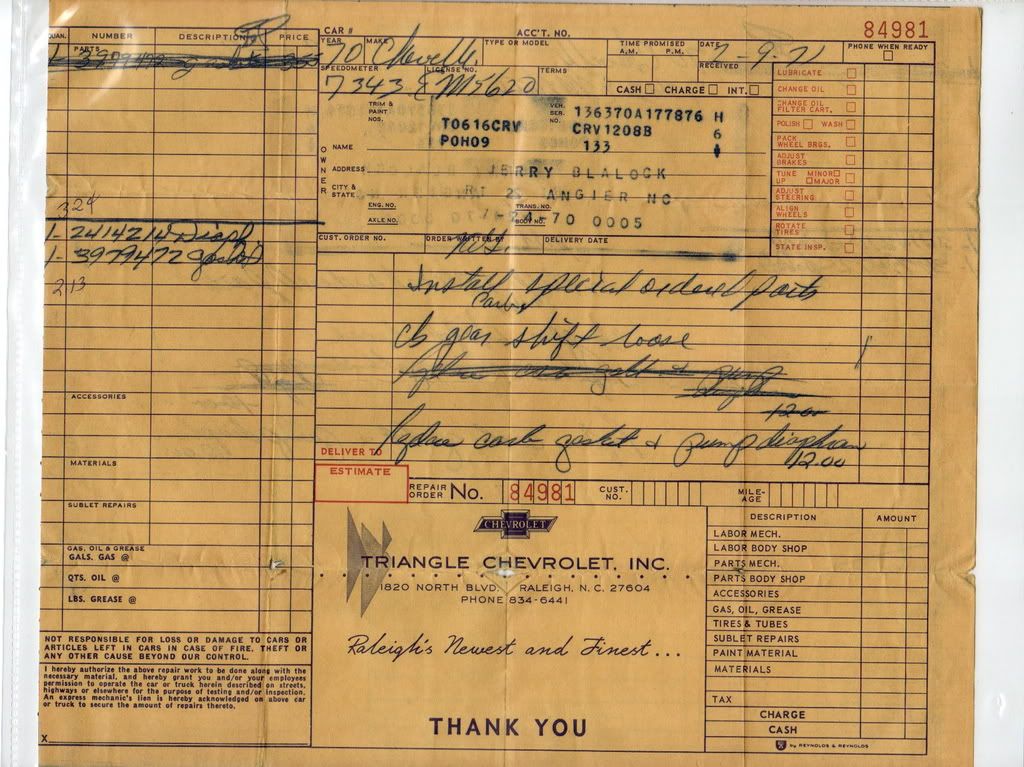 CAR # ACC'T. NO. 84981
QUAN. NUMBER DESCRIPTION PRICE
PARTS
YEAR MAKE TYPE OR MODEL TIME PROMISED DATE PHONE WHEN READY
70 Chevelle A.M. P.M. RECEIVED 7-9-71
SPEEDOMETER LICENSE NO. TERMS
7343 EM5620 CASH CHARGE INT.
TRIM & PAINT NOS. VEH. SER. NO. 136370A177876 H
T0616CRV CRV1208B 6
P0H09 133
OWNER
NAME
ADDRESS JERRY BLALOCK
CITY & STATE RT 2 ANGIER NC
ENG. NO. TRANS. NO.
AXLE NO. BODY NO. 7-24-70 0005
CUST. ORDER NO. ORDER WRITTEN BY DELIVERY DATE
LUBRICATE
CHANGE OIL
CHANGE OIL FILTER CART.
POLISH WASH
PACK WHEEL BRGS.
ADJUST BRAKES
TUNE UP MINOR MAJOR
ADJUST STEERING
ALIGN WHEELS
ROTATE TIRES
STATE INSP.
324
1- 2414214 Diaph
1- 3979477 gasket
213
Install special ordered parts
Carb
cb gear shift loose
12.00
Replace carb gasket & pump diaphram
12.00
ACCESSORIES
MATERIALS
SUBLET REPAIRS
GAS, OIL & GREASE
GALS. GAS @
QTS. OIL @
LBS. GREASE @
NOT RESPONSIBLE FOR LOSS OR DAMAGE TO CARS OR
ARTICLES LEFT IN CARS IN CASE OF FIRE, THEFT OR
ANY OTHER CAUSE BEYOND OUR CONTROL.
I hereby authorize the above repair work to be done along with the
necessary material, and hereby grant you and/or your employees
permission to operate the car or truck herein described on streets,
highways or elsewhere for the purpose of testing and/or inspection.
An express mechanic's lien is hereby acknowledged on above car
or truck to secure the amount of repairs thereto.
X
DELIVER TO
ESTIMATE
REPAIR ORDER No. 84981 CUST. NO. MILE-AGE
CHEVROLET
TRIANGLE CHEVROLET, INC.
1820 NORTH BLVD. RALEIGH, N. C. 27604
PHONE 834-6441
Raleigh's Newest and Finest...
THANK YOU
DESCRIPTION AMOUNT
LABOR MECH.
LABOR BODY SHOP
PARTS MECH.
PARTS BODY SHOP
ACCESSORIES
GAS, OIL, GREASE
TIRES & TUBES
SUBLET REPAIRS
PAINT MATERIAL
MATERIALS
TAX
CHARGE
CASH
by REYNOLDS & REYNOLDS